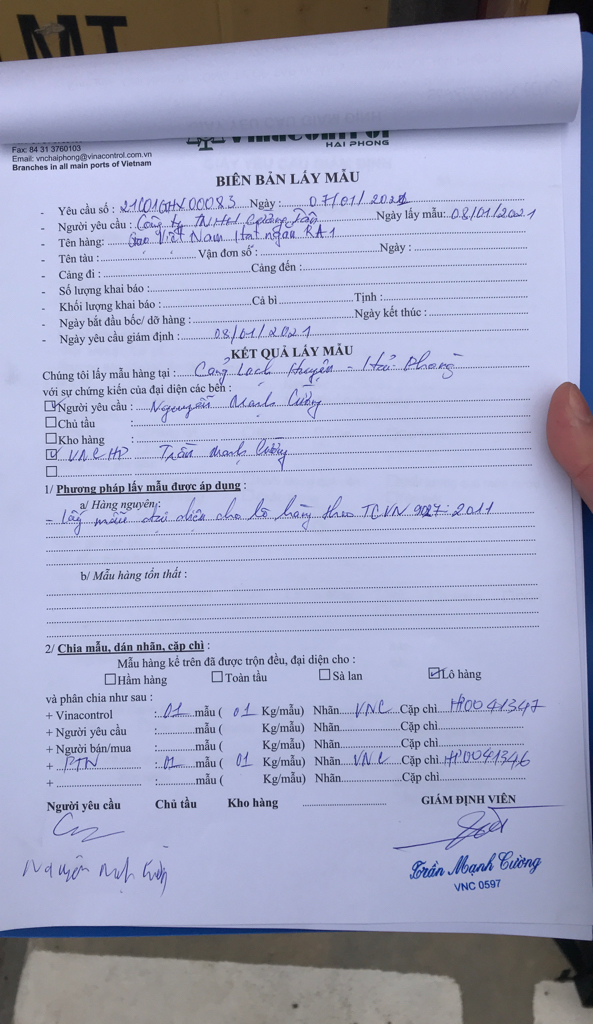 MT
Fax: 84 31 3760103
Email: vnchaiphong@vinacontrol.com.vn
Branches in all main ports of Vietnam
vinacontrol
HAI PHONG
BIÊN BẢN LẤY MẪU
- Yêu cầu số : 21C01GHX00083 Ngày : 07/01/2021
- Người yêu cầu : Công ty TNHH Cường Tân Ngày lấy mẫu: 08/01/2021
- Tên hàng: Gạo Việt Nam hạt ngắn RA1
- Tên tàu : Vận đơn số : Ngày :
- Cảng đi : Cảng đến :
- Số lượng khai báo :
- Khối lượng khai báo : Cả bì Tịnh :
- Ngày bắt đầu bốc/ dỡ hàng : Ngày kết thúc :
- Ngày yêu cầu giám định : 08/01/2021
KẾT QUẢ LẤY MẪU
Chúng tôi lấy mẫu hàng tại : Cảng Lạch Huyện - Hải Phòng
với sự chứng kiến của đại diện các bên :
Người yêu cầu : Nguyễn Mạnh Cường
Chủ tầu :
Kho hàng :
VNCHP Trần Mạnh Cường
1/ Phương pháp lấy mẫu được áp dụng :
a/ Hàng nguyên:
- Lấy mẫu đại diện cho lô hàng theo TCVN 9027:2011
b/ Mẫu hàng tổn thất :
2/ Chia mẫu, dán nhãn, cặp chì :
Mẫu hàng kể trên đã được trộn đều, đại diện cho :
Hầm hàng Toàn tầu Sà lan Lô hàng
và phân chia như sau :
+ Vinacontrol : 01 mẫu ( 01 Kg/mẫu) Nhãn VNC Cặp chì HP0041347
+ Người yêu cầu : mẫu ( Kg/mẫu) Nhãn Cặp chì
+ Người bán/mua mẫu ( Kg/mẫu) Nhãn Cặp chì
+ PTN : 01 mẫu ( 01 Kg/mẫu) Nhãn VNC Cặp chì HP0041346
+ : mẫu ( Kg/mẫu) Nhãn Cặp chì
Người yêu cầu Chủ tầu Kho hàng GIÁM ĐỊNH VIÊN
Nguyễn Mạnh Cường
Trần Mạnh Cường
VNC 0597